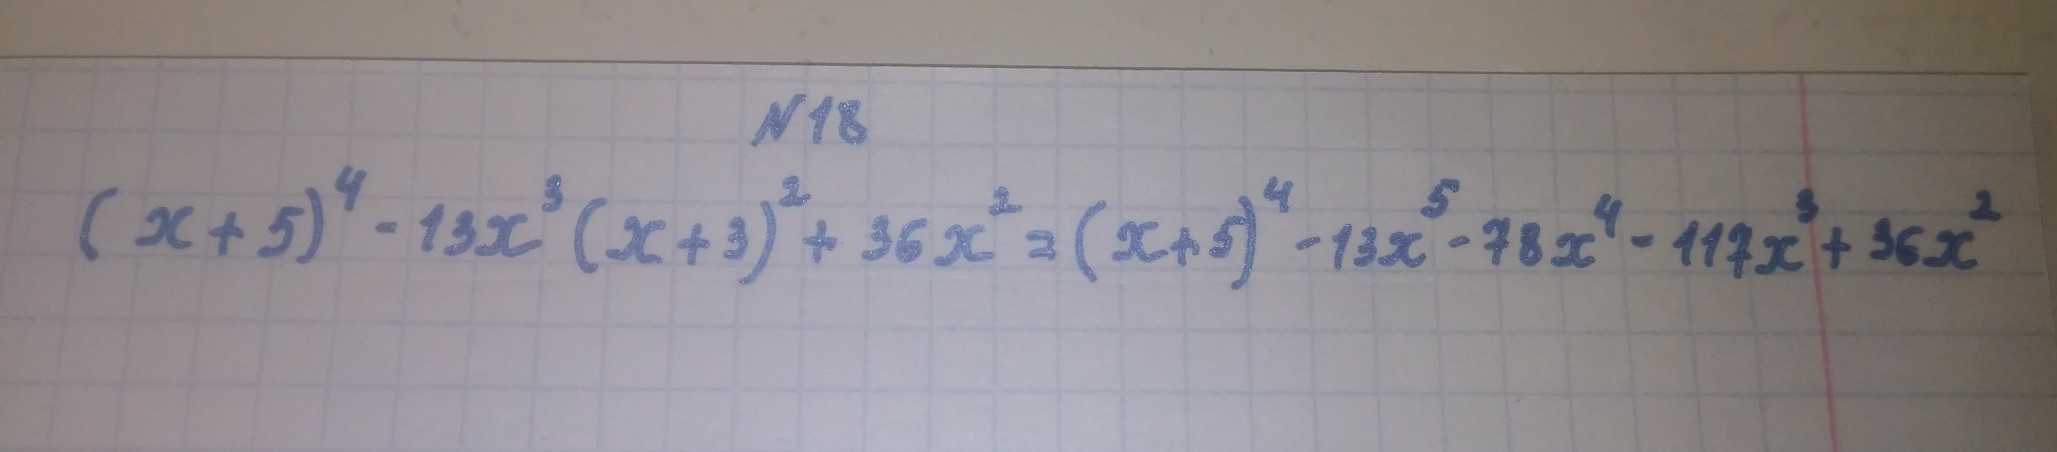 N18
(x+5)⁴-13x³(x+3)²+36x²=(x+5)⁴-13x⁵-78x⁴-117x³+36x²